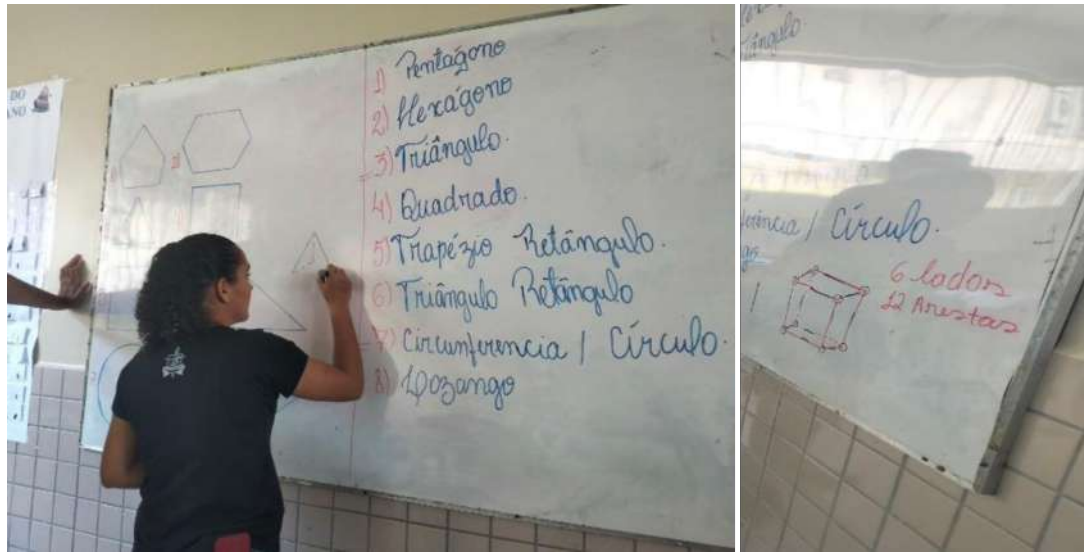 DO
ANO
1) Pentágono
2) Hexágono
3) Triângulo.
4) Quadrado.
5) Trapézio Retângulo.
6) Triângulo Retângulo
7) Circunferencia / Círculo.
8) Lozango
iângulo.
ferência / Círculo.
6 lados
12 Arestas